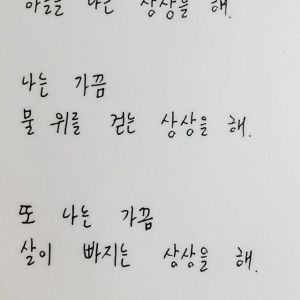 하늘을 나는 상상을 해.
나는 가끔
물 위를 걷는 상상을 해.
또 나는 가끔
살이 빠지는 상상을 해.